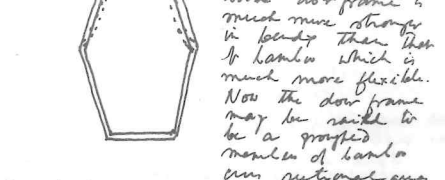 door frame is
much more stronger
in bending than that
of bamboo which is
much more flexible.
Now the door frame
may be said to
be a grouped
member of bamboo